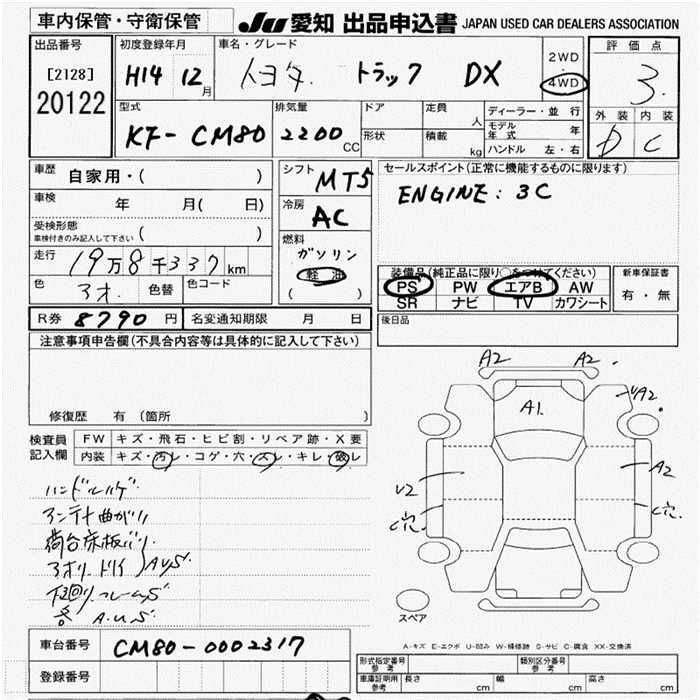 車内保管・守衛保管
JU 愛知 出品申込書 JAPAN USED CAR DEALERS ASSOCIATION
出品番号
[2128]
20122
初度登録年月
H14 12月
車名・グレード
トヨタ トラック DX
2WD
4WD
評価点
3.
外装 内装
D C
型式
KF-CM80
排気量
2200 CC
ドア
形状
定員 人
積載 kg
ディーラー・並行
モデル年式 年
ハンドル 左・右
車歴 自家用・( )
車検 年 月( 日)
受検形態
車検付きのみ記入して下さい ( )
走行 19万8千337km
色 アオ. 色替 色コード
シフト MT5
冷房 AC
燃料
ガソリン
軽油
( )
セールスポイント(正常に機能するものに限ります)
ENGINE: 3C
装備品(純正品に限り○をつけてください)
PS PW エアB AW
SR ナビ TV カワシート
新車保証書
有・無
R券 8790円 名変通知期限 月 日
後日品
注意事項申告欄(不具合内容等は具体的に記入して下さい)
修復歴 有 (箇所 )
検査員記入欄
FW キズ・飛石・ヒビ割・リペア跡・X要
内装 キズ・汚レ・コゲ・穴・スレ・キレ・破レ
ハンドルハゲ
アンテナ曲がり
荷台床板バリ
下回り.フレームS
A.U.S
A2 A2
A1
A2
A2
U2
C穴
C穴
スペア
A-キズ E-エクボ U-凹み W-補修跡 S-サビ C-腐食 XX-交換済
車台番号 CM80-0002317
登録番号
形式指定番号 参考
類別区分番号 参考
車庫証明用 参考 長さ cm 幅 cm 高さ cm